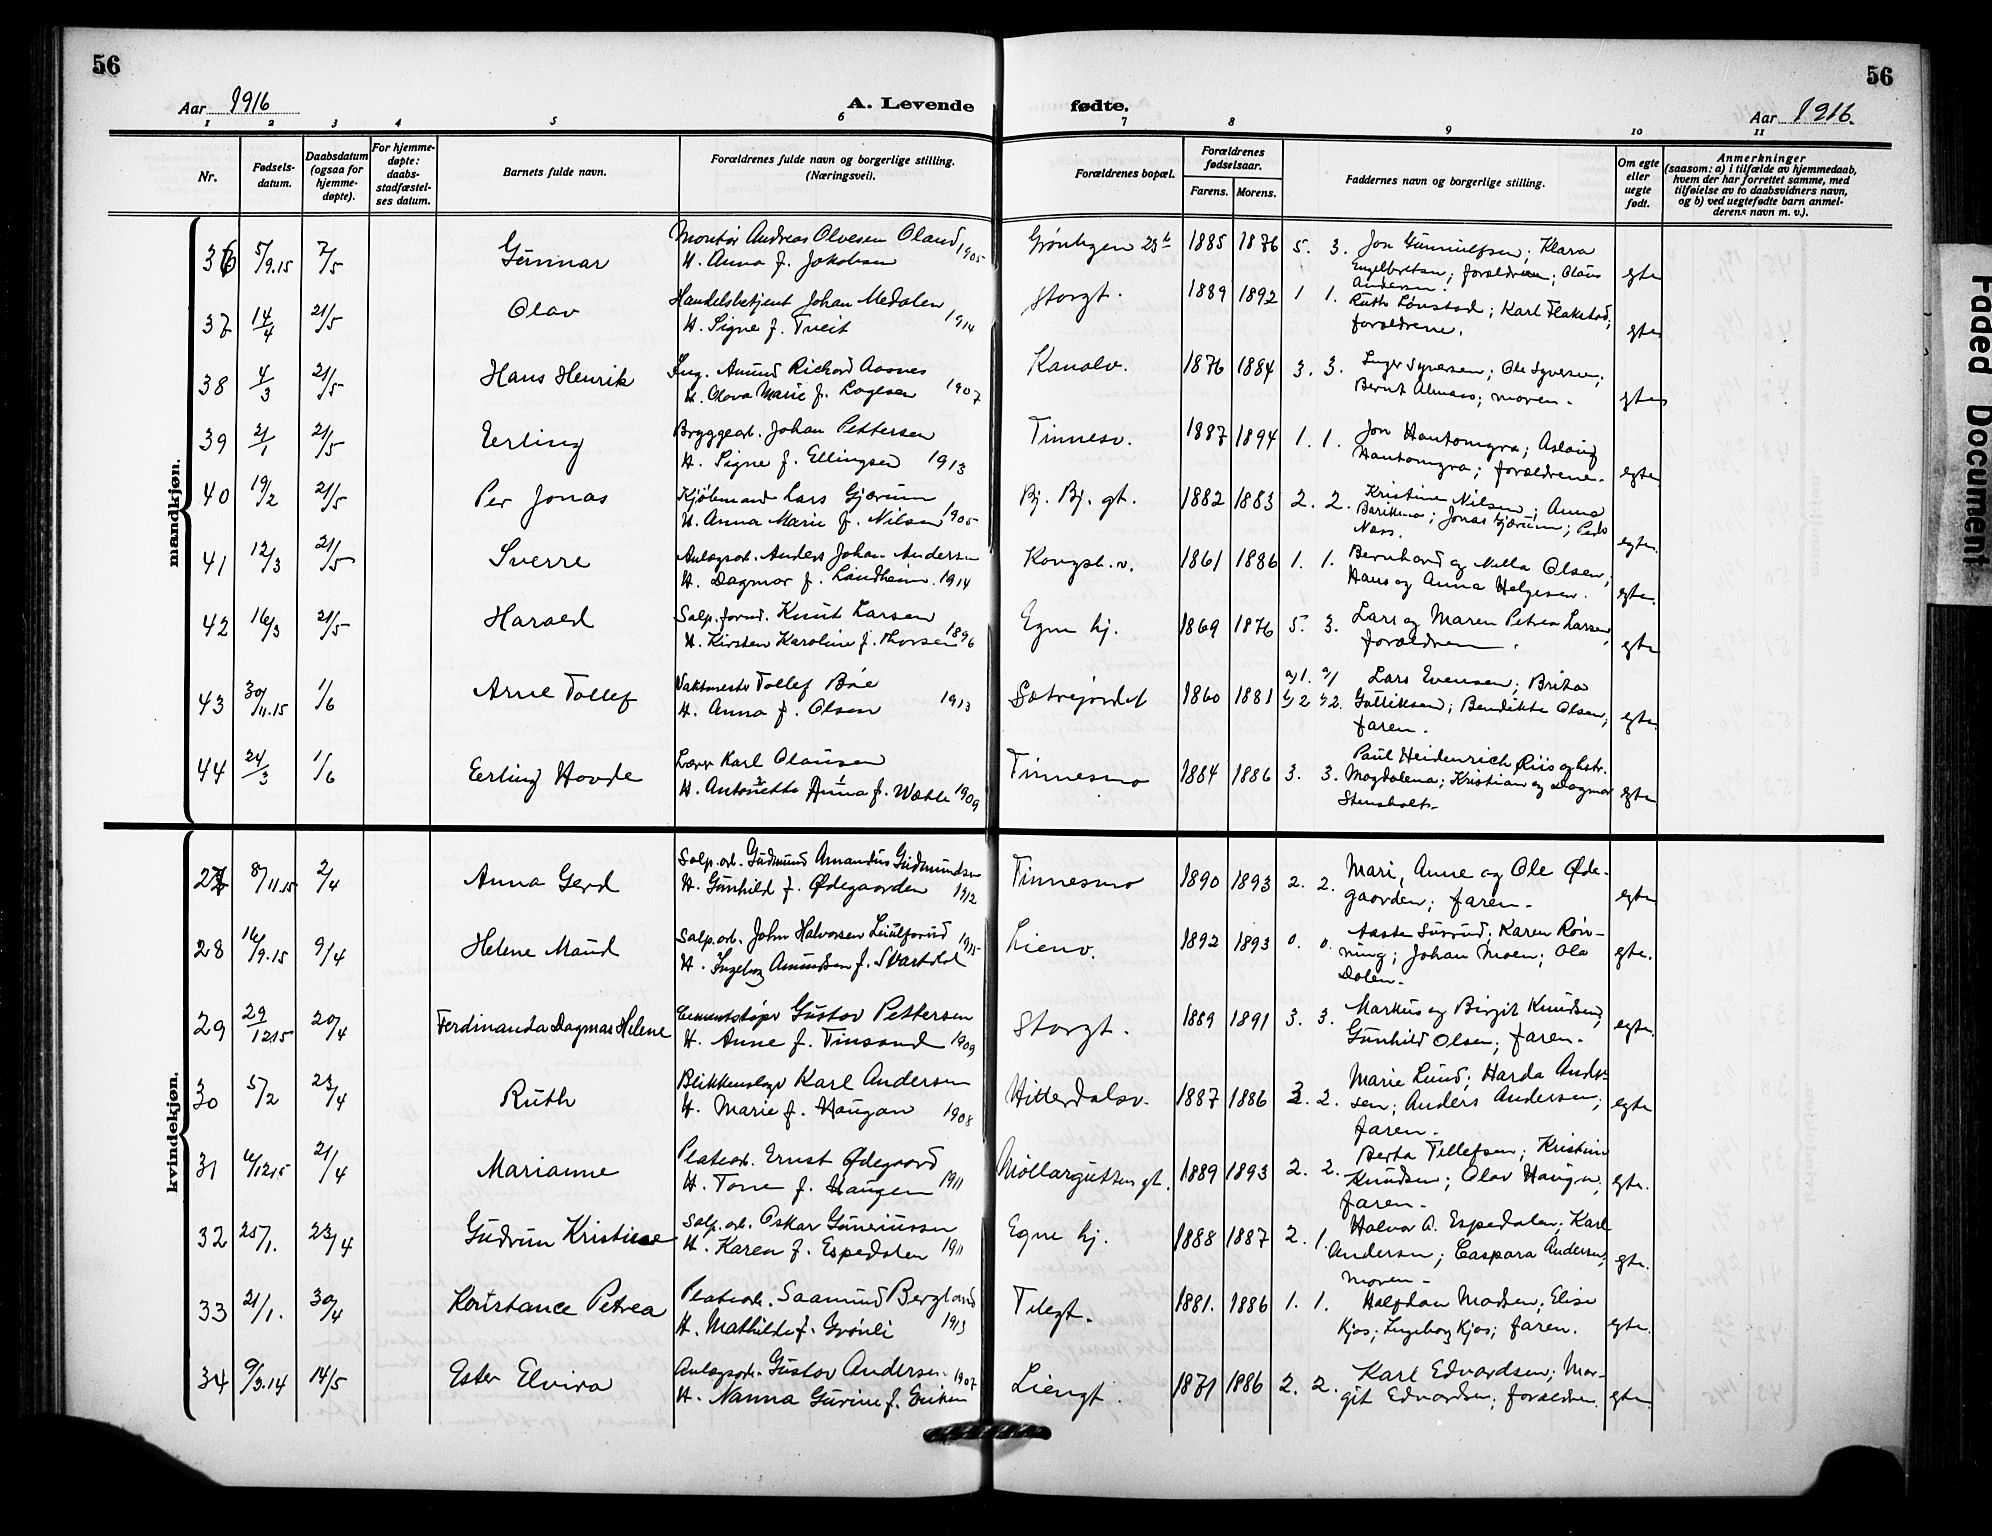 56
56
Aar 1916
A. Levende fødte.
Aar 1916.
1 2 3 4 5 6 7 8 9 10 11
Nr.
Fødsels-
datum.
Daabsdatum
(ogsaa for
hjemme-
døpte).
For hjemme-
døpte:
daabs-
stadfæstel-
ses datum.
Barnets fulde navn.
Forældrenes fulde navn og borgerlige stilling.
(Næringsvei).
Forældrenes bopæl.
Forældrenes
fødselsaar.
Farens. Morens.
Faddernes navn og borgerlige stilling.
Om egte
eller
uegte
født.
Anmerkninger
(saasom: a) i tilfælde av hjemmedaab,
hvem der har forrettet samme, med
tilføielse av to daabsvidners navn,
og b) ved uegtefødte barn anmel-
derens navn m. v.).
mandkjøn.
36 5/9.15 7/5 Gunnar Montør Andreas Olvesen Oland 1905
H. Anna f. Jakobsen
Grønbygen 23b 1885 1876 5. 3. Jon Gunnulfsen; Klara
Engelbretsen; forældrene; Olaus
Andersen. egte
37 14/4 21/5 Olav Handelsbetjent Johan Medalen
H. Signe f. Tveit 1914
Storgt. 1889 1892 1 1. Ruth Lønstad; Karl Flakstad;
forældrene. egte
38 4/3 21/5 Hans Henrik Ing. Amund Richard Aasnes
H. Olava Marie f. Lagesen 1907
Kanalv. 1876 1884 3. 3. Inger Syversen; Ole Syversen;
Bernt Almaas; moren. egte
39 21/1 21/5 Erling Bryggearb. Johan Pettersen
H. Signe f. Ellingsen 1913
Tinnesv. 1887 1894 1. 1. Jon Hantomyra; Aslaug
Hantomyra; forældrene. egte
40 19/2 21/5 Per Jonas Kjøbmand Lars Gjærum
H. Anna Marie f. Nilsen 1905
Bj. Bj. gt. 1882 1883 2. 2. Kristine Nilsen; Anna
Jonas Gjærum; Peder
Næss. egte.
41 12/3 21/5 Sverre Anlægsarb. Anders Johan Andersen
H. Dagmar f. Lindheim. 1914
Kongsb. v. 1861 1886 1. 1. Bernhard og Nilla Olsen;
Hans og Anna Helgesen. egte.
42 16/3 21/5 Harald Salp.formd. Knut Larsen
H. Kirsten Karoline f. Thorsen 1896
Egne hj. 1869 1876 5. 3. Lars og Maren Petrea Larsen;
forældrene. egte
43 30/11.15 1/6 Arne Tollef Vaktmester Tollef Bøe
H. Anna f. Olsen 1913
Sætrejordet 1860 1881 a) 1. a) 1
b) 2 b) 2. Lars Evensen; Brita
Gulliksen; Bendikte Olsen;
faren. egte.
44 24/3 1/6 Erling Hovde Lærer Karl Olausen
H. Antonette Anna f. Wæhle 1909
Tinnesmo 1884 1886 3. 3. Paul Heidenrich Riis og hstr.
Magdalena; Kristian og Dagmar
Stensholt. egte
kvindekjøn.
27 8/11.15 2/4 Anna Gerd Salp.arb. Gudmund Amandus Gudmundsen
H. Gunhild f. Ødegaarden 1912
Tinnesmo 1890 1893 2. 2. Mari, Anne og Ole Øde-
gaarden; faren. egte
28 16/9.15 9/4 Helene Maud Salp.arb. John Halvorsen Leiulfsrud 1915
H. Ingeborg Amundsen f. Svartdal
Lienv. 1892 1893 0. 0. Aaste Susrud; Karen Røn-
ning; Johan Moen; Ola
Dalen. egte.
29 29/12.15 20/4 Ferdinanda Dagmar Helene Cementstøper Gustav Pettersen
H. Anne f. Tinsand 1909
Storgt. 1889 1891 3. 3. Markus og Birgit Knudsen;
Gunhild Olsen; faren. egte.
30 5/2 23/4 Ruth Blikkenslager Karl Andersen
H. Marie f. Haugan 1908
Hitterdalsv. 1887 1886 3. 2. Marie Lund; Harda Ander-
sen; Anders Andersen;
faren. egte
31 6/12.15 21/4 Marianne Platearb. Ernst Ødegaard
H. Tone f. Haugen 1911
Møllarguttengt. 1889 1893 2. 2. Berta Tellefsen; Kristine
Knudsen; Olav Haugen;
faren. egte.
32 25/1. 23/4 Gudrun Kristine Salp.arb. Oskar Guneriussen
H. Karen f. Espedalen 1911
Egne hj. 1888 1887 2. 1. Halvor A. Espedalen; Karl
Andersen; Caspara Andersen;
moren. egte.
33 21/1. 30/4 Konstance Petrea Platearb. Saamund Bergland
H. Mathilde f. Grønli 1913
Tilegt. 1881. 1886 1. 1. Halfdan Madsen; Elise
Kjos; Ingeborg Kjos; faren. egte.
34 9/3.14 14/5 Ester Elvira Anlægsarb. Gustav Andersen 1907
H. Nanna Gurine f.
Liengt. 1871 1886 2. 2. Karl Edvardsen; Mar-
git Edvardsen; forældrene. egte.
Faded Document